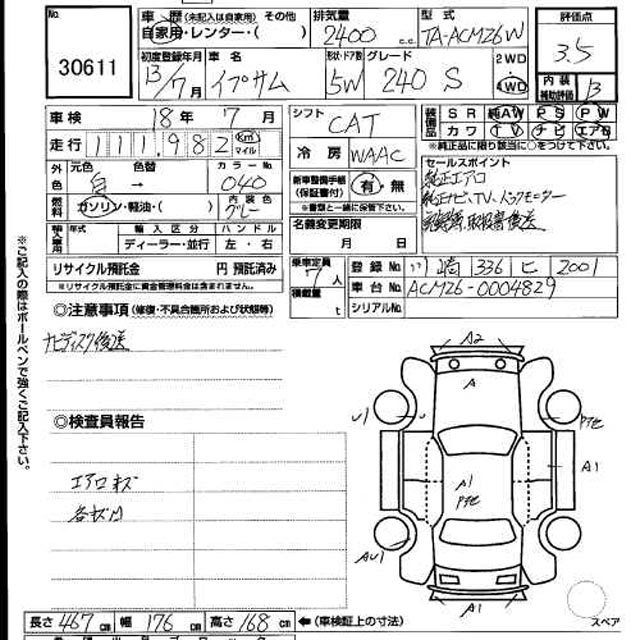 No.
30611
車歴 (未記入は自家用) その他
自家用・レンター・( )
排気量
2400 c.c.
型式
TA-ACM26W
評価点
3.5
初度登録年月
13/7月
車名
イプサム
形状・ドア数
5W
グレード
240 S
2WD
4WD
内装
補助評価
B
車検 18年 7月
走行 111,982 km マイル
シフト
CAT
冷房 WAAC
装備品
SR 純AW PS PW
カワ TV ナビ エアB
*純正品に限り該当に○をつけて下さい。
外色
元色 色替 カラーNo.
白 → 040
燃料
ガソリン・軽油・( )
内装色
グレー
新車整備手帳
(保証書付)
有・無
*書類と一緒に保管下さい。
セールスポイント
純正エアロ
純正ナビ、TV、バックモニター
取扱書後送
輸入車用
年式 輸入区分 ハンドル
ディーラー・並行 左・右
名義変更期限
月 日
リサイクル預託金 円 預託済み
※リサイクル預託金に資金管理料金は含まれません。
乗車定員
7人
積載量
t
登録No. 川崎 336 ヒ 2001
車台No. ACM26-0004829
シリアルNo.
◎注意事項 (修復・不具合箇所および状態等)
ナビディスク後送
◎検査員報告
エアロキズ
各キズ凹
※ご記入の際はボールペンで強くご記入下さい。
A2
A
U1
PTE
A1
A1
PTE
AU1
A1
スペア
長さ 467cm 幅 176cm 高さ 168cm ←(車検証上の寸法)